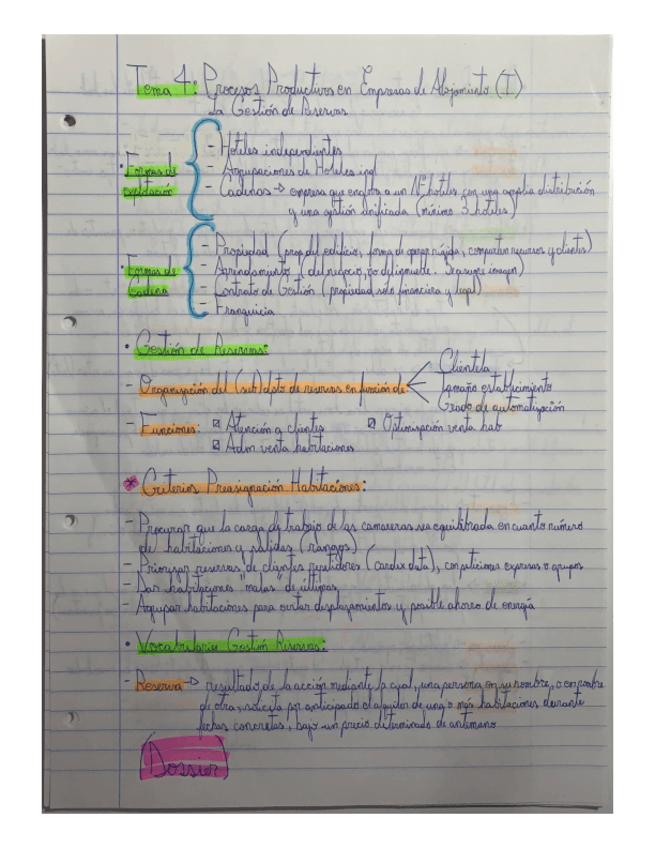 Tema 4: Procesos Productivos en Empresas de Alojamiento (I)
La Gestión de Reservas
- Hoteles independientes
• Formas de explotación
- Agrupaciones de Hoteles ind
- Cadenas → empresa que engloba a un Nº hoteles con una amplia distribución
y una gestión unificada (mínimo 3 hoteles)
- Propiedad (prop del edificio, forma de operar rígida, comparten recursos y clientes)
• Formas de Cadena
- Arrendamiento (del negocio, no del inmueble. Se asume imagen)
- Contrato de Gestión (propiedad solo financiera y legal)
- Franquicia
• Gestión de Reservas:
- Organización del (sub) dpto de reservas en función de:
Clientela
Tamaño establecimiento
Grado de automatización
- Funciones: ☑ Atención a clientes ☑ Optimización venta hab
☑ Adm venta habitaciones
* Criterios Preasignación Habitaciones:
- Procurar que la carga de trabajo de las camareras sea equilibrada en cuanto número
de habitaciones y salidas (rangos)
- Priorizar reservas de clientes repetidores (cardex data), con peticiones expresas o grupos
- Dar habitaciones "malas" de últimas
- Agrupar habitaciones para evitar desplazamientos y posible ahorro de energía
• Vocabulario Gestión Reservas:
- Reserva → resultado de la acción mediante la cual, una persona en su nombre, o en nombre
de otra, solicita por anticipado el alquiler de una o más habitaciones durante
fechas concretas, bajo un precio determinado de antemano
Dossier